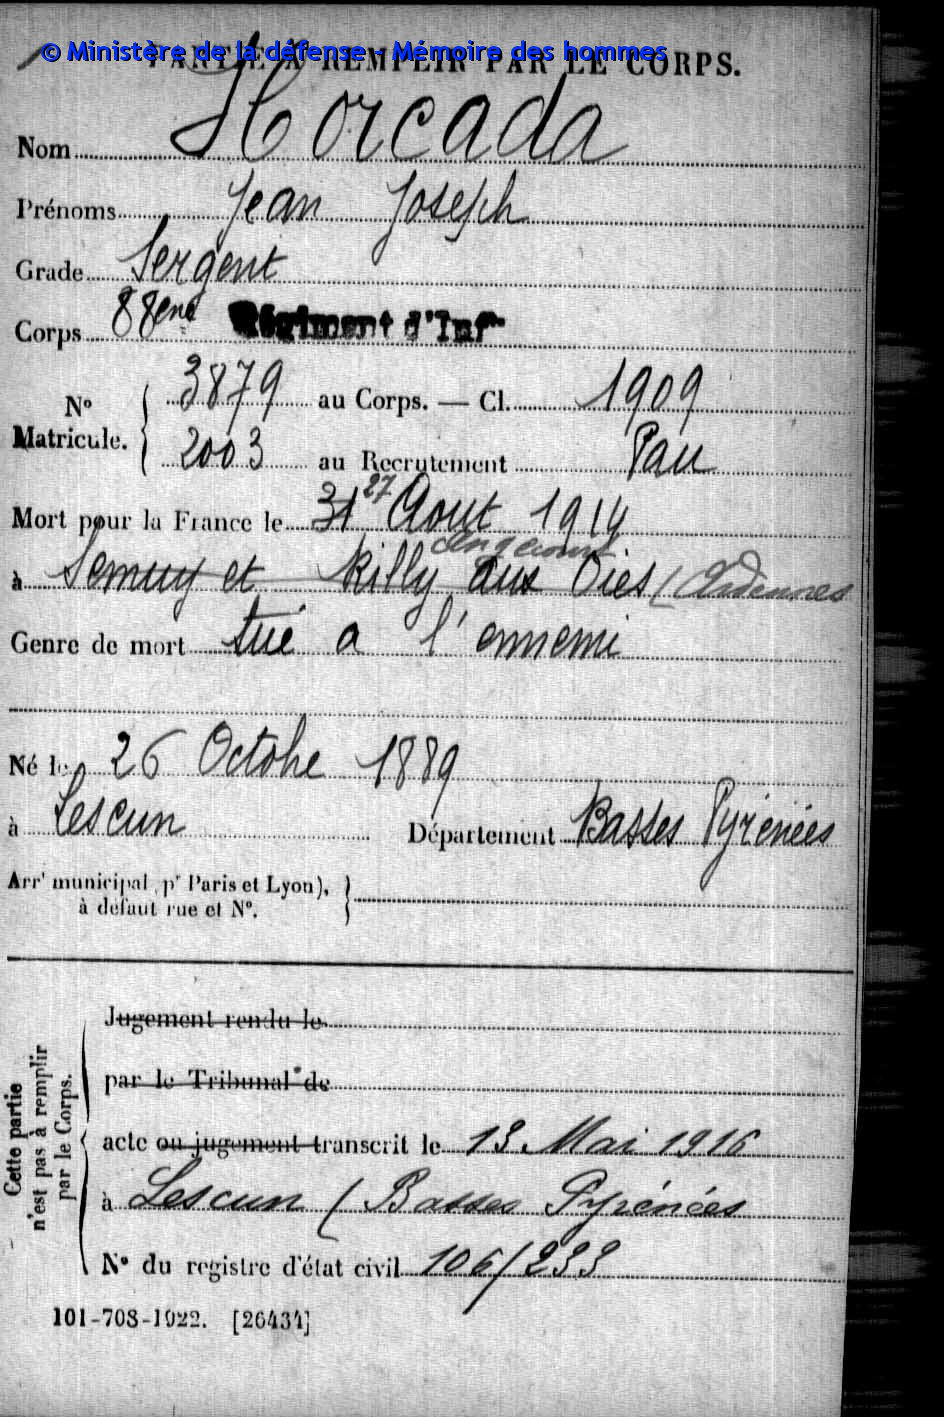 © Ministère de la défense - Mémoire des hommes
PARTIE À REMPLIR PAR LE CORPS.
Nom Horcada
Prénoms Jean Joseph
Grade Sergent
Corps 88ème Régiment d'Inf
3879 au Corps. — Cl. 1909
N° Matricule.
2003 au Recrutement Pau
27
Mort pour la France le 31 Août 1914
Angecourt
à Semuy et Rilly aux Oies (Ardennes
Genre de mort tué a l'ennemi
Né le 26 Octobre 1889
à Lescun Département Basses Pyrénées
Arrt municipal (pr Paris et Lyon),
à défaut rue et N°.
Cette partie
n'est pas à remplir
par le Corps.
Jugement rendu le
par le Tribunal de
acte ou jugement transcrit le 13 Mai 1916
à Lescun (Basses Pyrénées
N° du registre d'état civil 106/233
101-708-1922. [26434]